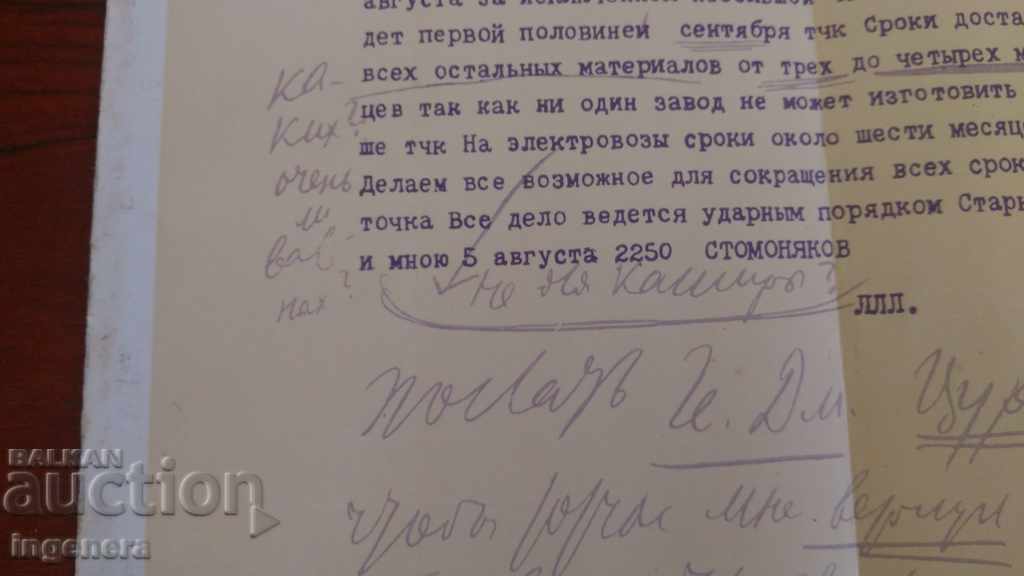 августа за
дет первой половиней сентября тчк Сроки доста
всех остальных материалов от трех до четырех м
цев так как ни один завод не может изготовить
ше тчк На электровозы сроки около шести месяце
Делаем все возможное для сокращения всех срок
точка Все дело ведется ударным порядком Старк
и мною 5 августа 2250 СТОМОНЯКОВ
ЛЛЛ.
ка-
ких?
очень
ли
ва
нах?
не для Каширы?
послать Дм. Цур
чтобы мне вернул
BALKAN
auction
ingenera